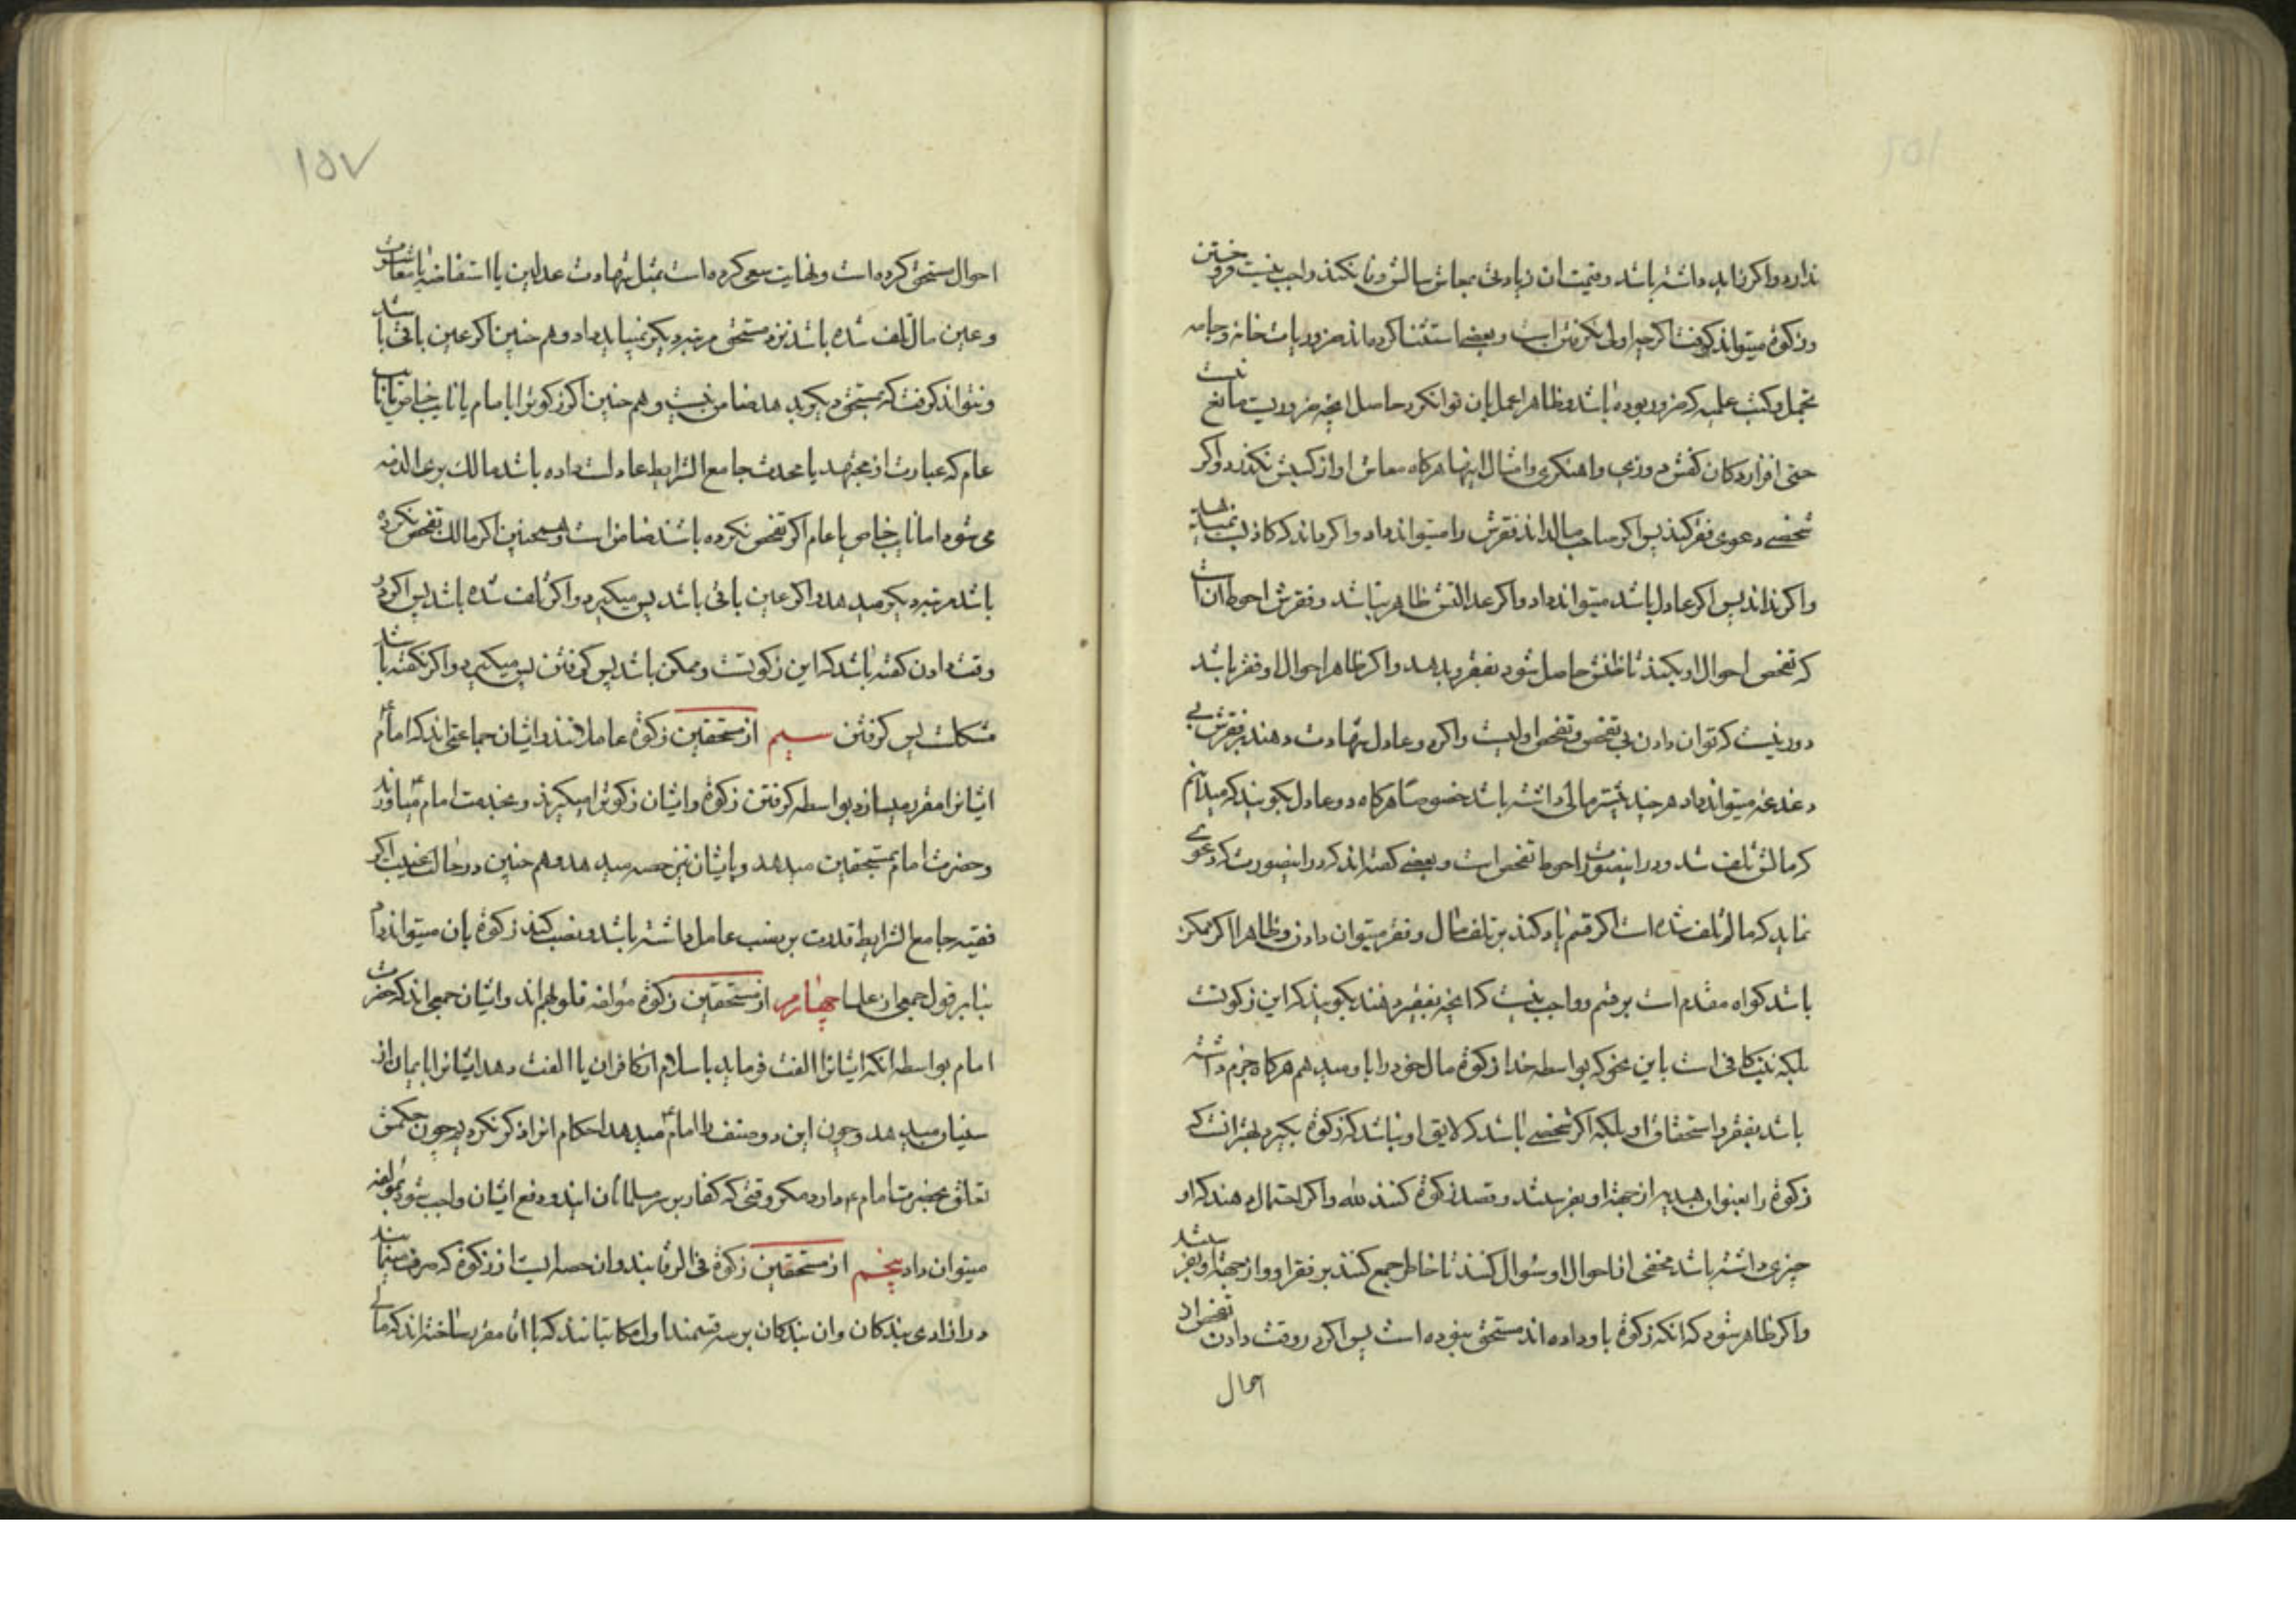 ندارد واکر زاید داشته باشد و قیمت ان زیادتی بمعاش سالش وفا نکند واجب نیست فروختن
و زکوة میتواند کرفت اکرچه اولی نکرفتن است و بعضی استثنا کرده اند ضروریات خانه و جامه
تجمل و کتب علمیه که ضرور بوده باشد و ظاهرا عمل بان توان کرد حاصل انچه ضروریست مانع نیست
حتی افزار دکان کفش دوزی و اهنکری و امثال اینها هرکاه معاش او از کسبش نکذرد و اکر
شخصی دعوی فقر کند پس اکر صاحب مال داند فقرش را میتواند داد و اکر داند که کاذبست نمیتواند
و اکر نداند پس اکر عادل باشد میتواند داد و اکر عدالتش ظاهر نباشد و فقرش احوط ان است
که تفحص احوال او بکند تا ظنش حاصل شود بفقر و بدهد و اکر ظاهر احوال او فقر باشد
دور نیست که توان دادن بی تفحص و تفحص اولیست و اکر دو عادل شهادت دهند بر فقرش بی
دغدغه میتواند داد هر چند پیشتر مالی داشته باشد خصوصا هرکاه دو عادل بکویند که میدانم
که مالش تلف شد و در اینصورت احوط تفحص است و بعضی کفته اند که در اینصورت که دعوی
نماید که مالم تلف شده است اکر قسم یاد کند بر تلف مال و فقر میتوان دادن و ظاهرا اکر ممکن
باشد کواه مقدم است بر قسم و واجب نیست که انچه بفقیر دهند بکویند که این زکوتست
بلکه نیت کافی است باین نحو که بواسطه خدا زکوة مال خود را باو میدهم هرکاه جزم داشته
باشد بفقر و استحقاق او بلکه اکر شخصی باشد که لایق او نباشد که زکوة بکیرد بهتر انست که
زکوة را بعنوان هدیه از جهة او بفرستند و قصد زکوة کنند لله و اکر احتمال دهند که او
چیزی داشته باشد مخفی از احوال او سوال کنند تا خاطر جمع کنند بر فقر او و از جهة او بفرستند
و اکر ظاهر شود که انکه زکوة باو داده اند مستحق نبوده است پس اکر در وقت دادن تفحص از
احوال
١٥٧
احوال مستحق کرده است و نهایت سعی کرده است بمثل شهادت عدلین یا استفاضه یا معاشرت
و عین مال تلف شده باشد نزد مستحق مرتبه دیکر نمیباید داد و هم چنین اکر عین باقی باشد
و نتواند کرفت که بمستحق دیکر بدهد ضامن نیست و هم چنین اکر زکوتش را بامام یا نایب خاص یا نایب
عام که عبارت از مجتهد یا محدث جامع الشرایط عادلست داده باشد مالک بری الذمه
می شود اما نایب خاص یا عام اکر تفحص نکرده باشند ضامن است و همچنین اکر مالک تفحص نکرده
باشد مرتبه دیکر میدهد و اکر عین باقی باشد پس میکیرد و اکر تلف شده باشد پس اکر در
وقت دادن کفته باشد که این زکوتست و ممکن باشد پس کرفتن پس میکیرد و اکر نکفته باشد
مشکلست پس کرفتن سیم از مستحقین زکوة عاملانند و ایشان جماعتی اند که امام
ایشانرا مقرر میسازد بواسطه کرفتن زکوة و ایشان زکوتها را میکیرند و بخدمت امام میاورند
و حضرت امام بمستحقین میدهد و بایشان نیز حصه میدهد و هم چنین در حالت غیبت اکر
فقیه جامع الشرایط قدرت بر نصب عامل داشته باشد و نصب کند زکوة بان میتواند داد
بنا بر قول جمعی از علما چهارم از مستحقین زکوة مؤلفه قلوبهم اند و ایشان جمعی اند که حضرت
امام بواسطه انکه ایشانرا الفت فرماید باسلام از کافران یا الفت دهد ایشانرا بایمان از
سنیان میدهد و چون این دو صنف را امام میدهد احکام انرا ذکر نکردیم چون حکمش
تعلق بحضرت امام ع دارد مکر وقتی که کفار بر سر مسلمانان ایند و دفع ایشان واجب شود بمؤلفه
میتوان داد پنجم از مستحقین زکوة فی الرقابند و ان حصه ایست از زکوة که صرف مینمایند
در ازادی بندکان و ان بندکان بر سه قسمند اول مکاتبانند که با اقا مقرر ساخته اند که مالی